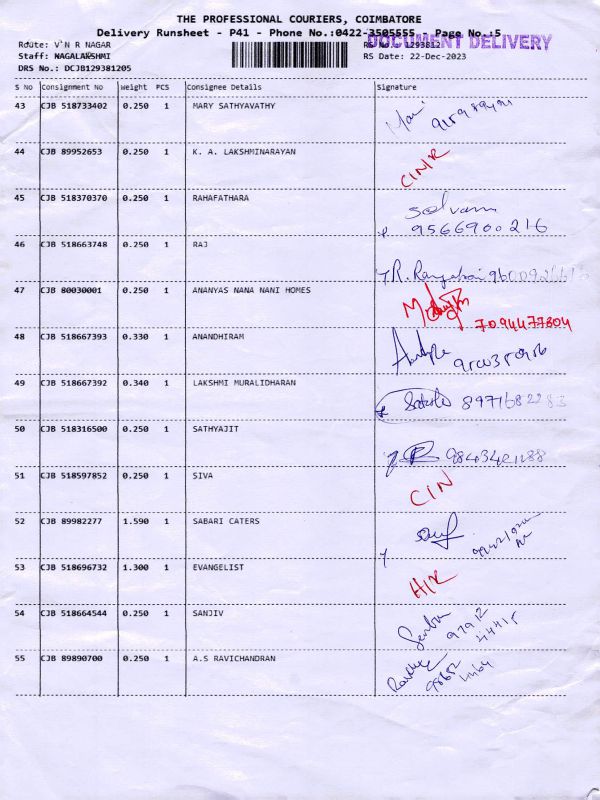 THE PROFESSIONAL COURIERS, COIMBATORE
Delivery Runsheet - P41 - Phone No.:0422-3505555 - Page No.:5
DOCUMENT DELIVERY
Route: V N R NAGAR
RS No.: 1293812
Staff: NAGALAKSHMI
RS Date: 22-Dec-2023
DRS No.: DCJB129381205
S No Consignment No Weight PCS Consignee Details Signature
43 CJB 518733402 0.250 1 MARY SATHYAVATHY
44 CJB 89952653 0.250 1 K. A. LAKSHMINARAYAN
45 CJB 518370370 0.250 1 RAHAFATHARA Selvam
9566900216
46 CJB 518663748 0.250 1 RAJ
47 CJB 80030001 0.250 1 ANANYAS NANA NANI HOMES
7094477304
48 CJB 518667393 0.330 1 ANANDHIRAM
49 CJB 518667392 0.340 1 LAKSHMI MURALIDHARAN 8971682283
50 CJB 518316500 0.250 1 SATHYAJIT
51 CJB 518597852 0.250 1 SIVA CIN
52 CJB 89982277 1.590 1 SABARI CATERS
53 CJB 518696732 1.300 1 EVANGELIST
54 CJB 518664544 0.250 1 SANJIV
55 CJB 89890700 0.250 1 A.S RAVICHANDRAN